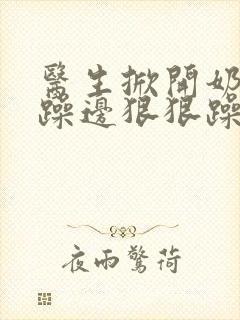 醫生掀開奶
躁邊狠狠躁
夜雨驚荷